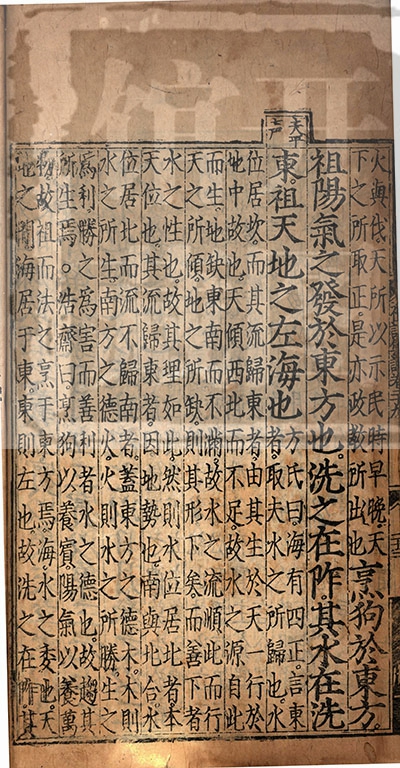 火與伐天所以示民時早晚天
下之所取正是亦政教所出也
烹狗於東方
祖陽氣之發於東方也。洗之在阼。其水在洗
東祖天地之左海也
方氏曰。海有四正。言東
者。取夫水之所歸也。水
位居坎。而其流歸東者。由其生於天一。行於
地中故也。天傾西北而不足。故水之源自此
而生。地缺東南而不滿。故水之流順此而行。
天之所傾。地之所缺。則其形下矣。而善下者
水之性也。故其理如此。然則水位居北者。本
天位也。其流歸東者。因地勢也。南與北合。水
位居北而流不歸南者。蓋東方之德木。木則
水之所生。南方之德火。火則水之所勝。生之
為利。勝之為害。而善利者。水之德也。故趨其
所生焉。浩齋曰。烹狗以養賓。陽氣以養萬
物。故祖而法之。烹于東方焉。海水之委也。天
地之間。海居于東。東則左也。故洗之在阼。其